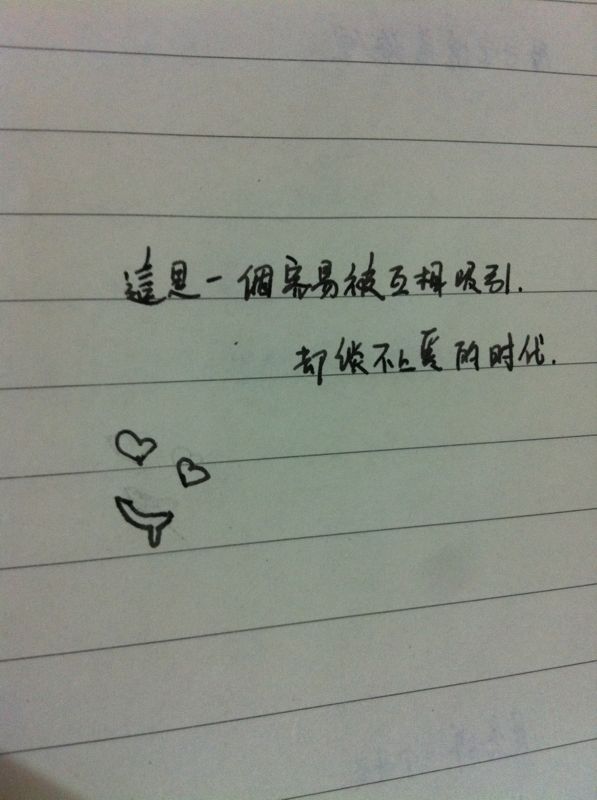 這是一個容易被互相吸引.
却谈不上爱的时代.